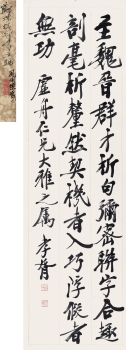 至魏晉群才析句彌密聯字合趣
剖毫析釐然契機者入巧浮假者
無功 虛舟仁兄大雅之属 孝胥